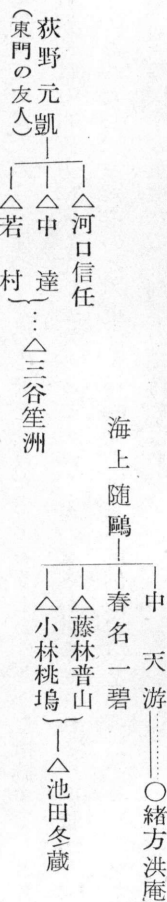 荻野元凱
（東門の友人）
△河口信任
△中達
△若村
△三谷笙洲
海上随鷗
中天游
○緒方洪庵
春名一碧
△藤林普山
△小林桃塢
△池田冬蔵